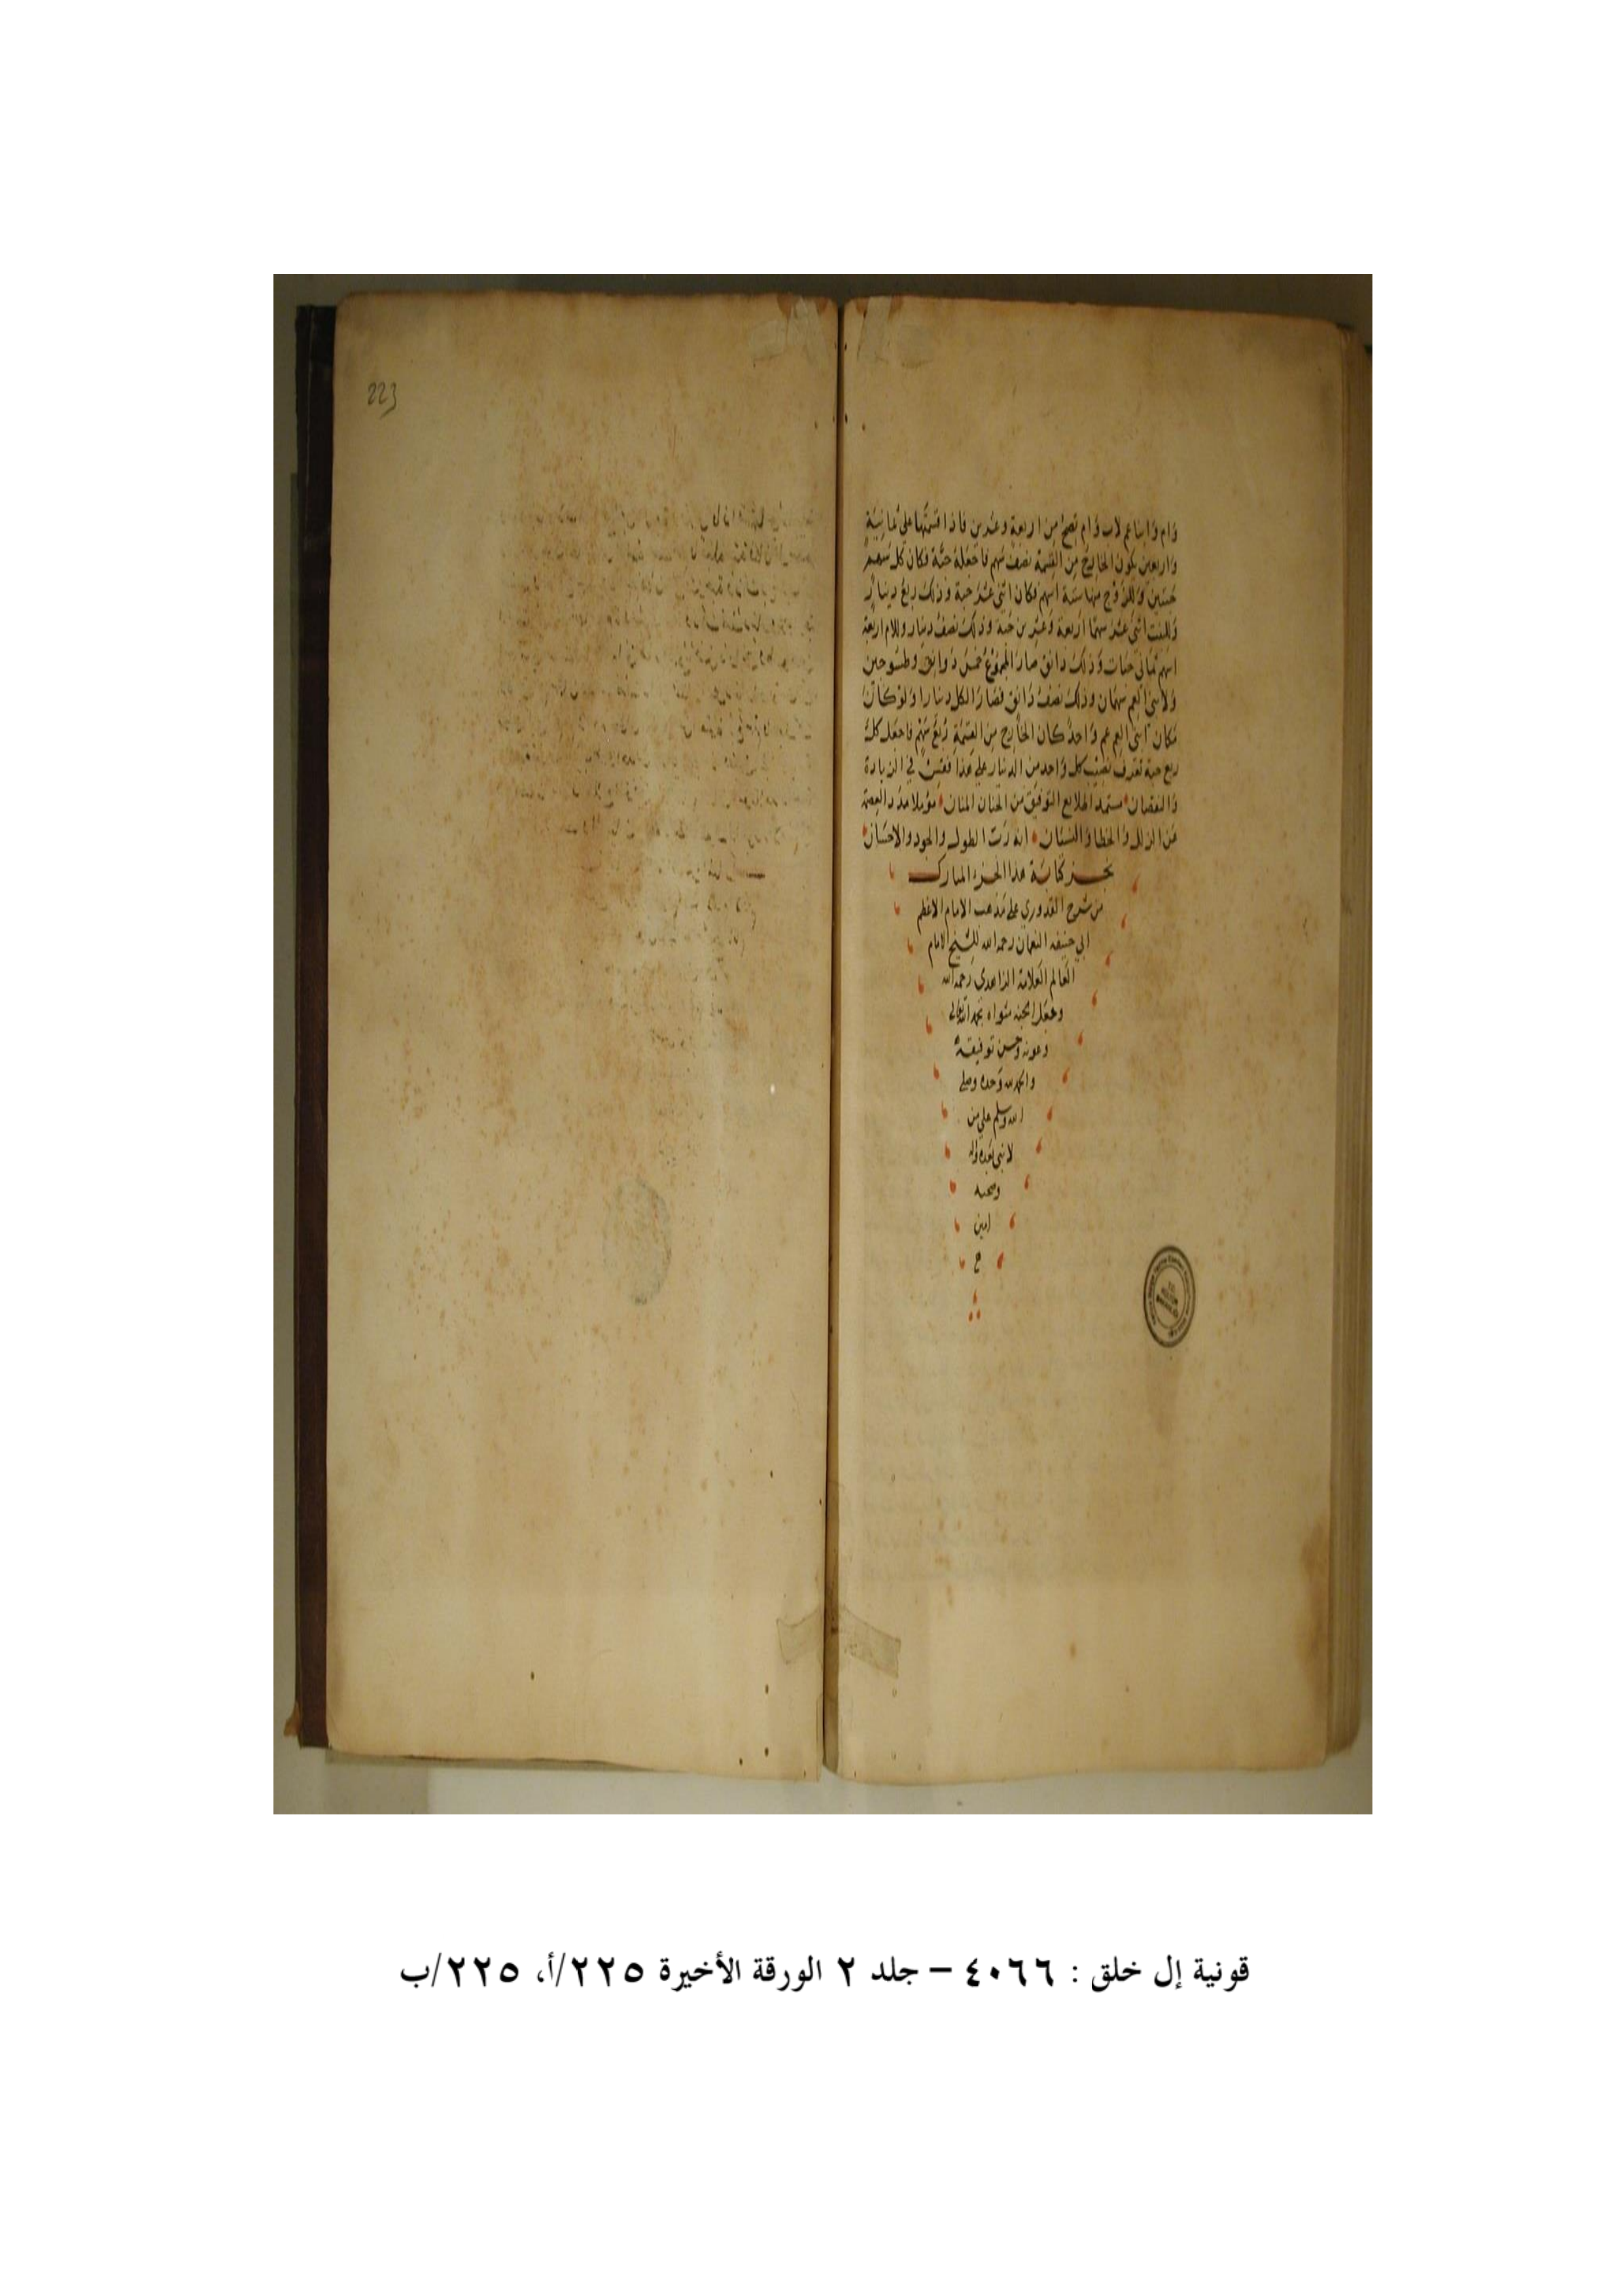 وام وابنا عم لاب وام تصح من اربعة وعشرين فاذا قسمتها على ثمانية
واربعين يكون الخارج من القسمة نصف سهم فاجعله حبة فكان كل سهم
حبتين وللزوج منها ستة اسهم فكان اثنى عشر حبة وذلك ربع دينار
وللبنت اثنى عشر سهما اربعة وعشرين حبة وذلك نصف دينار وللام اربعة
اسهم ثمانى حبات وذلك دانق صار المجموع خمس دوانق وطسوجين
ولابنى العم سهمان وذلك نصف دانق فصار الكل دينارا ولو كان
مكان ابنى العم عم واحد كان الخارج من القسمة ربع سهم فاجعل كل
ربع حبة تعرف نصيب كل واحد من الدينار على هذا فقس في الزيادة
والنقصان مستمد التوفيق من الحنان المنان مؤملا مدد العصمة
من الزلل والخطا والنسيان انه رب الطول والجود والاحسان
نجز كتابة هذا الجزء المبارك
من شرح القدوري على مذهب الامام الاعظم
ابي حنيفه النعمان رحمه الله للشيخ الامام
العالم العلامة الزاهدي رحمه الله
وجعل الجنه مثواه بحمد الله تعالى
وعونه وحسن توفيقه
والحمد لله وحده وصلى
الله وسلم على من
لا نبي بعده واله
وصحبه
امين
م
223
قونية إل خلق : ٤٠٦٦ – جلد ٢ الورقة الأخيرة ٢٢٥/أ، ٢٢٥/ب